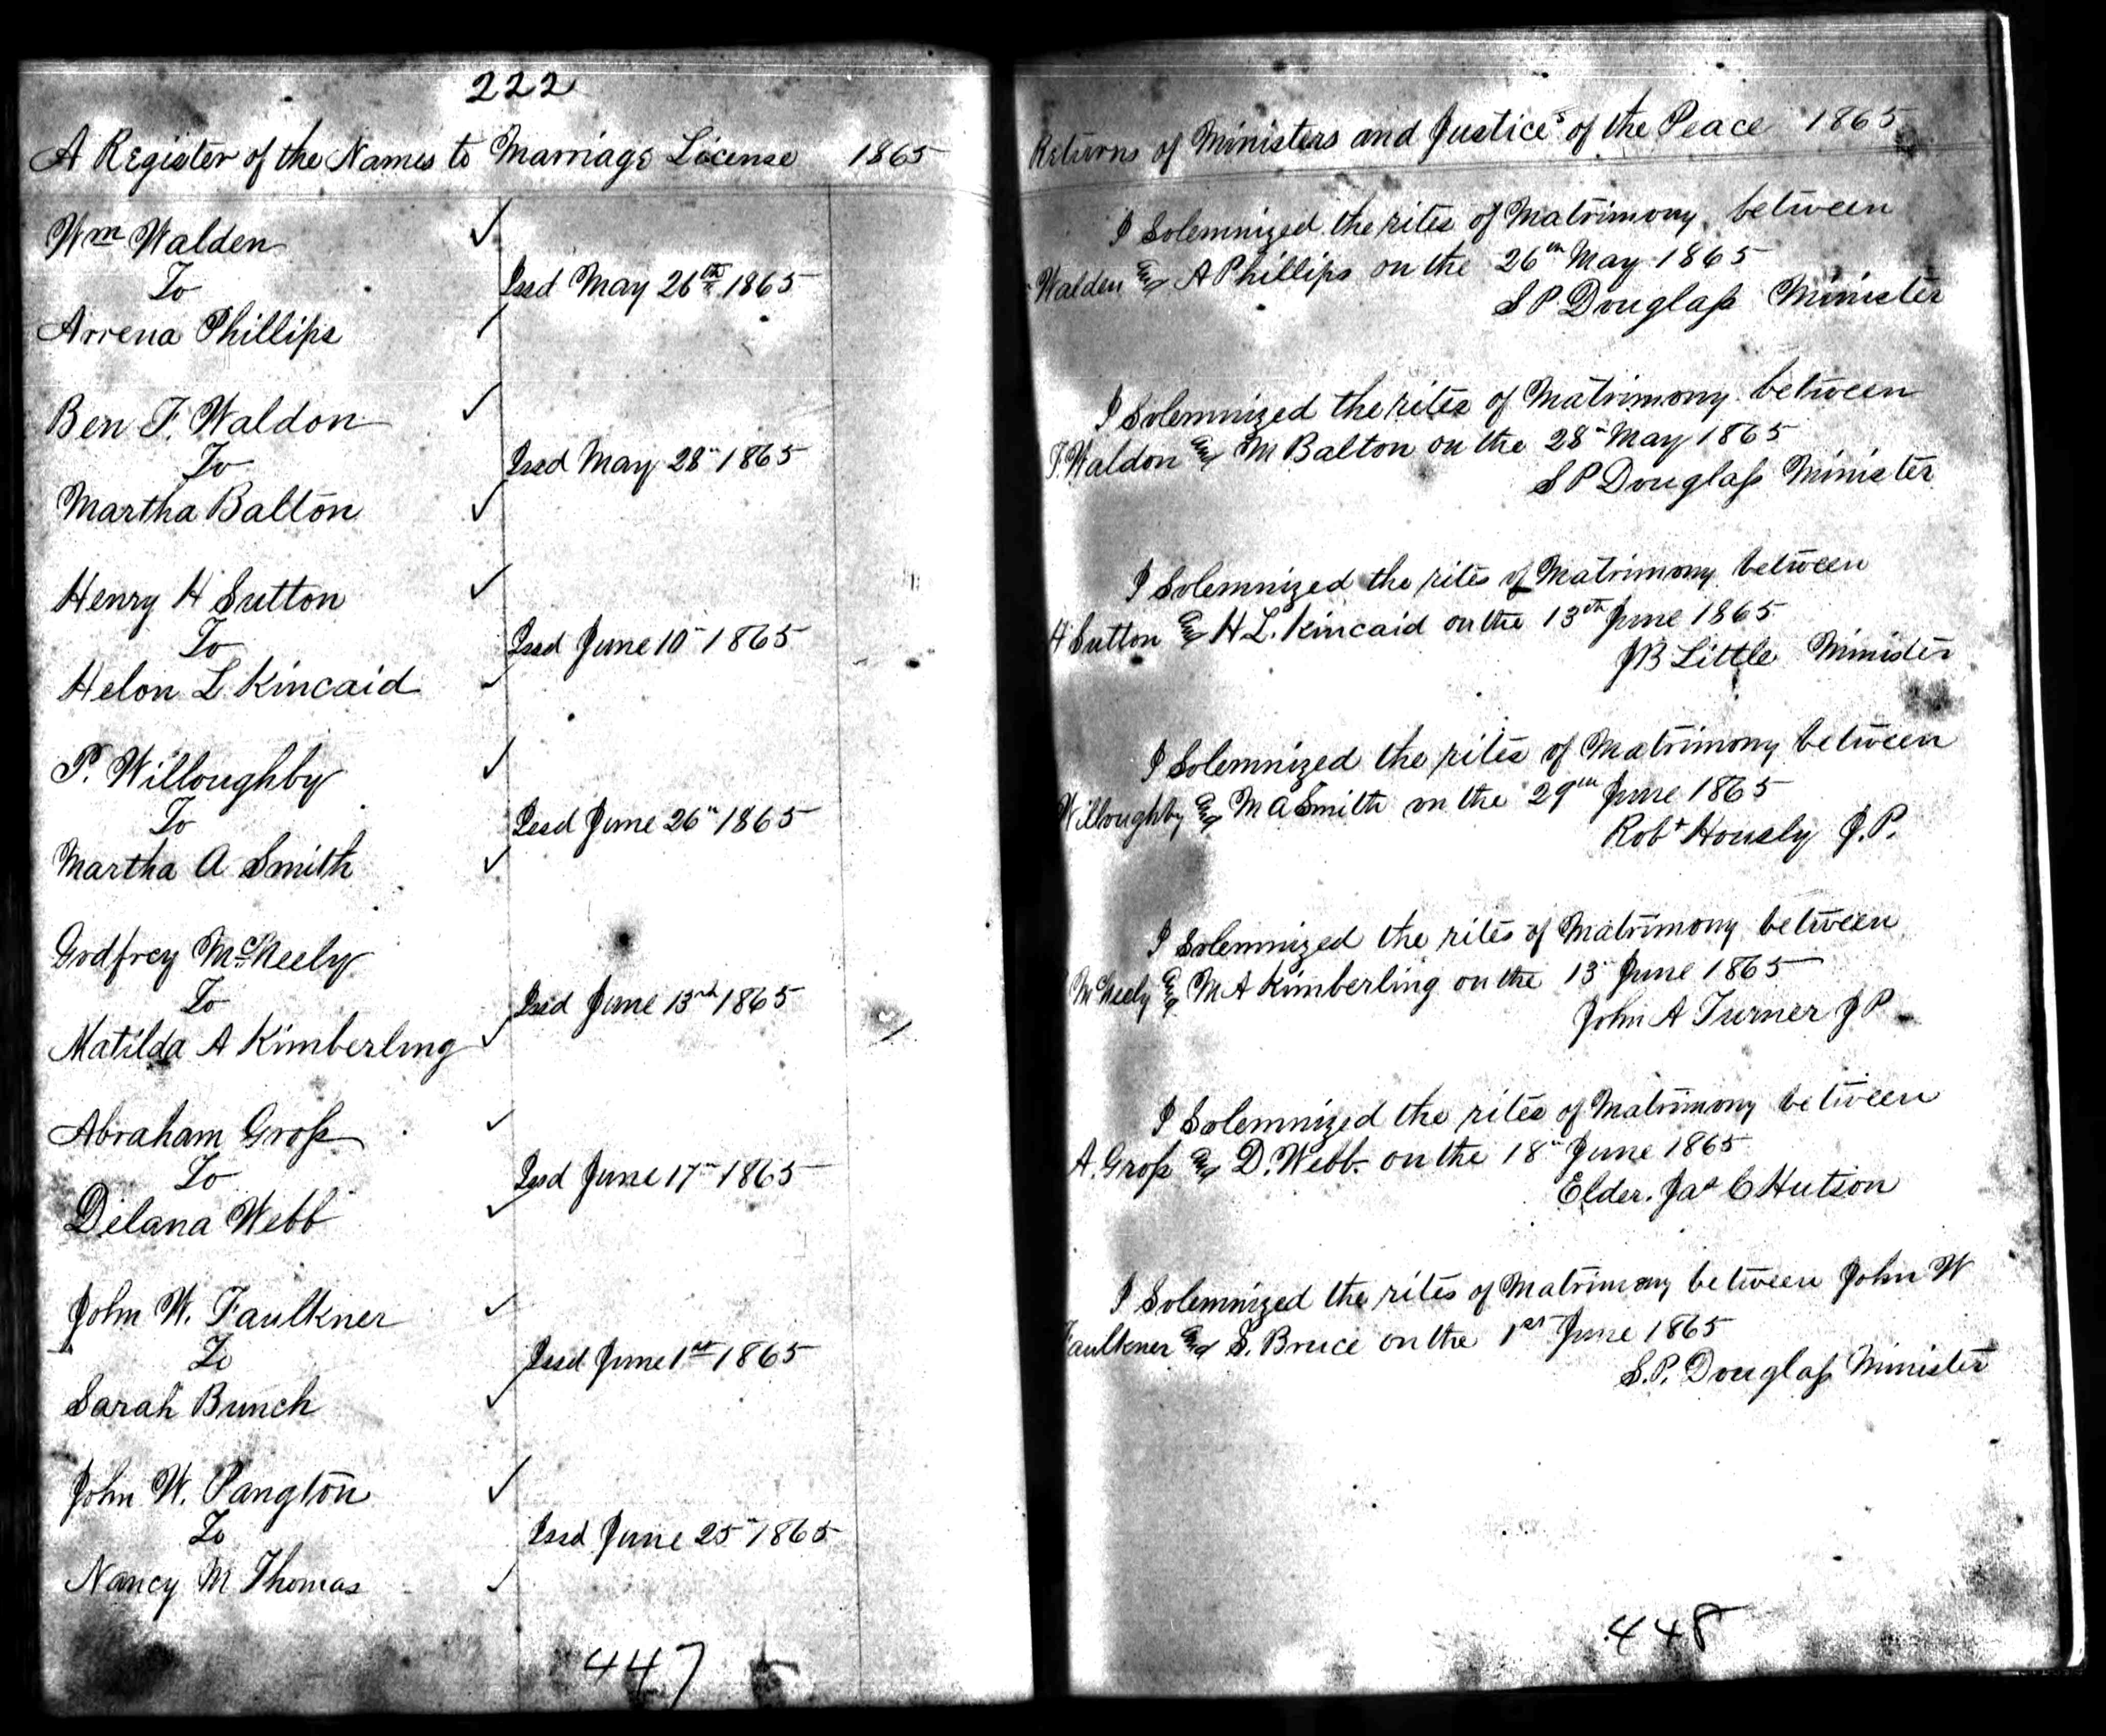 222
A Register of the Names to Marriage License 1865
Wm Walden
To
Issd May 26th 1865
Arrena Phillips
Ben F. Waldon
To
Issd May 28th 1865
Martha Balton
Henry H Sutton
To
Issd June 10th 1865
Helon L Kincaid
P. Willoughby
To
Issd June 26th 1865
Martha A Smith
Godfrey McNeely
To
Issd June 13th 1865
Matilda A Kimberling
Abraham Gross
To
Issd June 17th 1865
Delana Webb
John W. Faulkner
To
Issd June 1st 1865
Sarah Bunch
John W. Pangton
To
Issd June 25th 1865
Nancy M Thomas
447
Returns of Ministers and Justices of the Peace 1865
I Solemnized the rites of Matrimony between
Walden and A Phillips on the 26th May 1865
S P Douglass Minister
I Solemnized the rites of Matrimony between
F. Waldon and M Balton on the 28th May 1865
S P Douglass Minister
I Solemnized the rites of Matrimony between
H Sutton and H L. Kincaid on the 13th June 1865
JB Little Minister
I Solemnized the rites of Matrimony between
Willoughby and M A Smith on the 29th June 1865
Robt Hously J.P.
I Solemnized the rites of Matrimony between
McNeely and M A Kimberling on the 13th June 1865
John A Turner J P
I Solemnized the rites of Matrimony between
A. Gross and D. Webb on the 18th June 1865
Elder. Jas C Hutson
I Solemnized the rites of Matrimony between John W
Faulkner and S. Bruce on the 1st June 1865
S. P. Douglass Minister
448